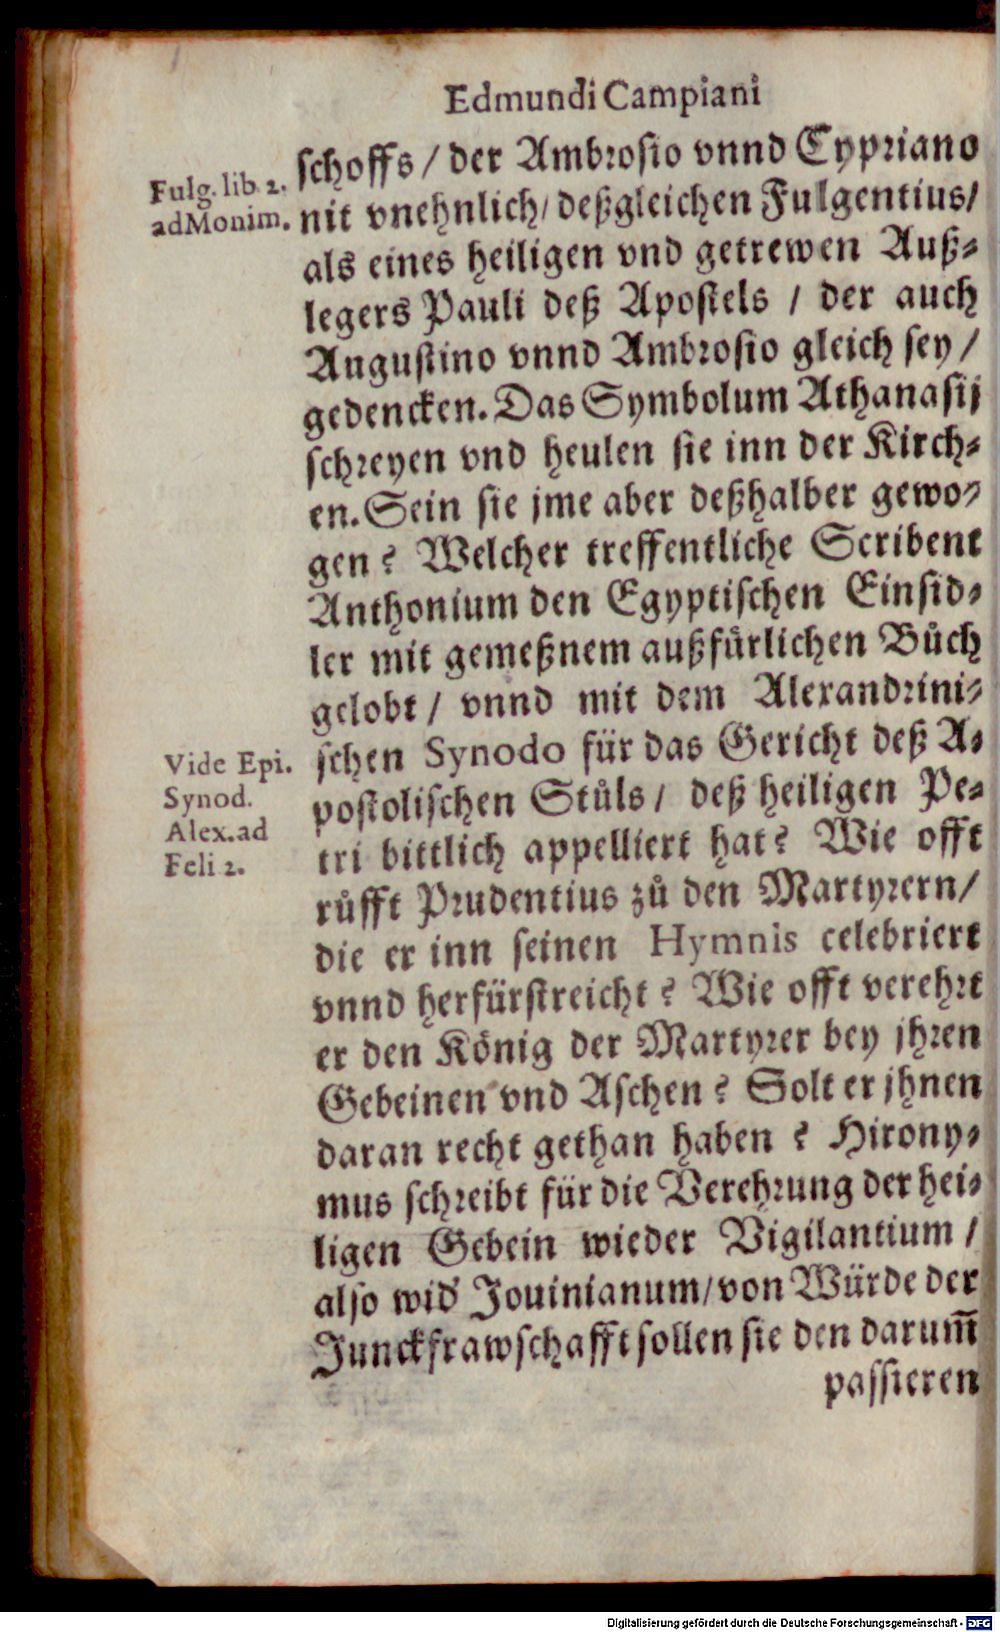 Edmundi Campiani
Fulg. lib 2.
ad Monim.
schoffs / der Ambrosio vnnd Cypriano
nit vnehnlich / deßgleichen Fulgentius /
als eines heiligen vnd getrewen Auß⸗
legers Pauli deß Apostels / der auch
Augustino vnnd Ambrosio gleich sey /
gedencken. Das Symbolum Athanasij
schreyen vnd heulen sie inn der Kirch⸗
en. Sein sie jme aber deßhalber gewo⸗
gen? Welcher treffentliche Scribent
Anthonium den Egyptischen Einsid⸗
ler mit gemeßnem außfürlichen Bůch
gelobt / vnnd mit dem Alexandrini⸗
Vide Epi.
Synod.
Alex. ad
Feli 2.
schen Synodo für das Gericht deß A⸗
postolischen Stůls / deß heiligen Pe⸗
tri bittlich appelliert hat? Wie offt
růfft Prudentius zů den Martyrern /
die er inn seinen Hymnis celebriert
vnnd herfürstreicht? Wie offt verehrt
er den König der Martyrer bey jhren
Gebeinen vnd Aschen? Solt er jhnen
daran recht gethan haben? Hirony⸗
mus schreibt für die Verehrung der hei⸗
ligen Gebein wieder Vigilantium /
also wid' Jouinianum / von Würde der
Junckfrawschafft sollen sie den darum̅
passieren
Digitalisierung gefördert durch die Deutsche Forschungsgemeinschaft - DFG